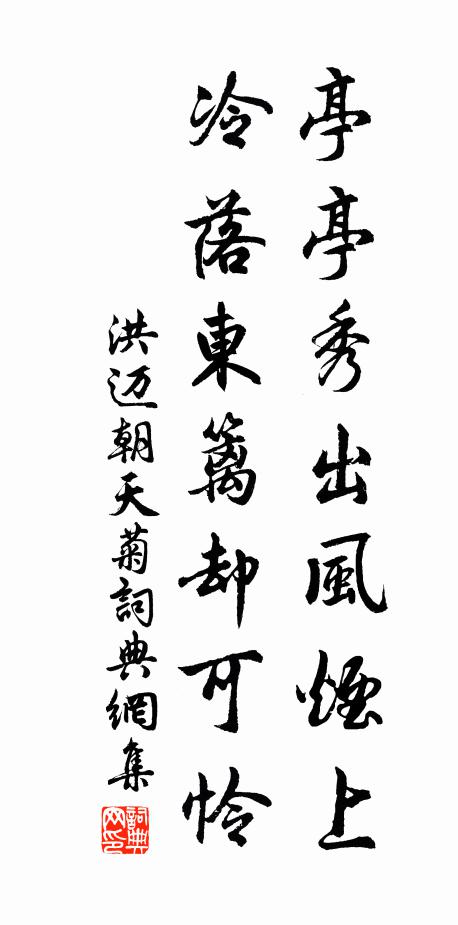 亭亭秀出風煙上
冷落東籬却可怜
洪迈朝天菊詞典網集
詞典网印